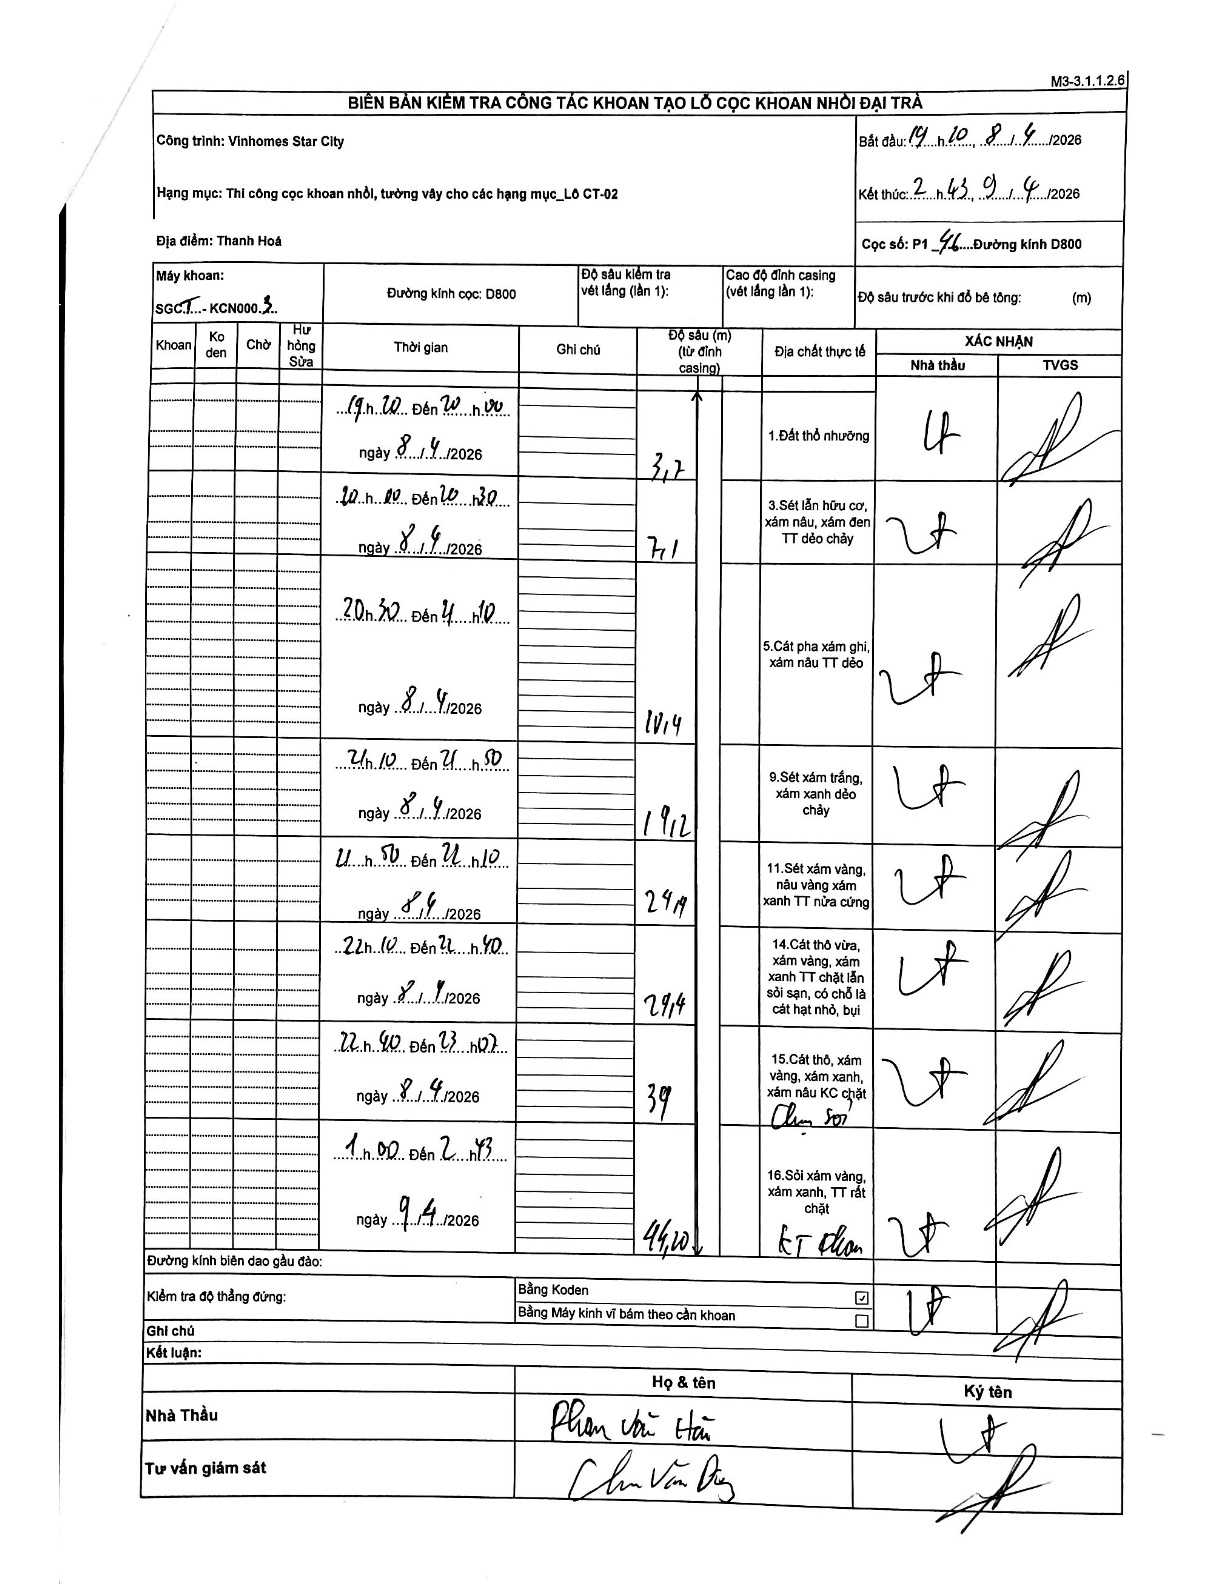 M3-3.1.1.2.6
BIÊN BẢN KIỂM TRA CÔNG TÁC KHOAN TẠO LỖ CỌC KHOAN NHỒI ĐẠI TRÀ
Công trình: Vinhomes Star City
Bắt đầu: 19 h 10, 8 / 4 /2026
Hạng mục: Thi công cọc khoan nhồi, tường vây cho các hạng mục_Lô CT-02
Kết thúc: 2 h 43, 9 / 4 /2026
Địa điểm: Thanh Hoá
Cọc số: P1_46....Đường kính D800
Máy khoan:
SGCT...- KCN000.3..
Đường kính cọc: D800
Độ sâu kiểm tra
vét lắng (lần 1):
Cao độ đỉnh casing
(vét lắng lần 1):
Độ sâu trước khi đổ bê tông: (m)
Khoan
Ko
den
Chờ
Hư
hỏng
Sửa
Thời gian
Ghi chú
Độ sâu (m)
(từ đỉnh
casing)
Địa chất thực tế
XÁC NHẬN
Nhà thầu
TVGS
19 h 20 Đến 20 h 00
ngày 8 / 4 /2026
3,7
1.Đất thổ nhưỡng
20 h 00 Đến 20 h 30
ngày 8 / 4 /2026
7,1
3.Sét lẫn hữu cơ,
xám nâu, xám đen
TT dẻo chảy
20 h 30 Đến 21 h 10
ngày 8 / 4 /2026
10,4
5.Cát pha xám ghi,
xám nâu TT dẻo
21 h 10 Đến 21 h 50
ngày 8 / 4 /2026
19,2
9.Sét xám trắng,
xám xanh dẻo
chảy
21 h 50 Đến 22 h 10
ngày 8 / 4 /2026
24,9
11.Sét xám vàng,
nâu vàng xám
xanh TT nửa cứng
22 h 10 Đến 22 h 40
ngày 8 / 4 /2026
29,4
14.Cát thô vừa,
xám vàng, xám
xanh TT chặt lẫn
sỏi sạn, có chỗ là
cát hạt nhỏ, bụi
22 h 40 Đến 23 h 07
ngày 8 / 4 /2026
39
15.Cát thô, xám
vàng, xám xanh,
xám nâu KC chặt
Chạm sỏi
1 h 00 Đến 2 h 43
ngày 9 / 4 /2026
44,20
16.Sỏi xám vàng,
xám xanh, TT rất
chặt
KT khoan
Đường kính biên dao gầu đào:
Kiểm tra độ thẳng đứng:
Bằng Koden
Bằng Máy kinh vĩ bám theo cần khoan
Ghi chú
Kết luận:
Họ & tên
Ký tên
Nhà Thầu
Phan Văn Hải
Tư vấn giám sát
Chu Văn